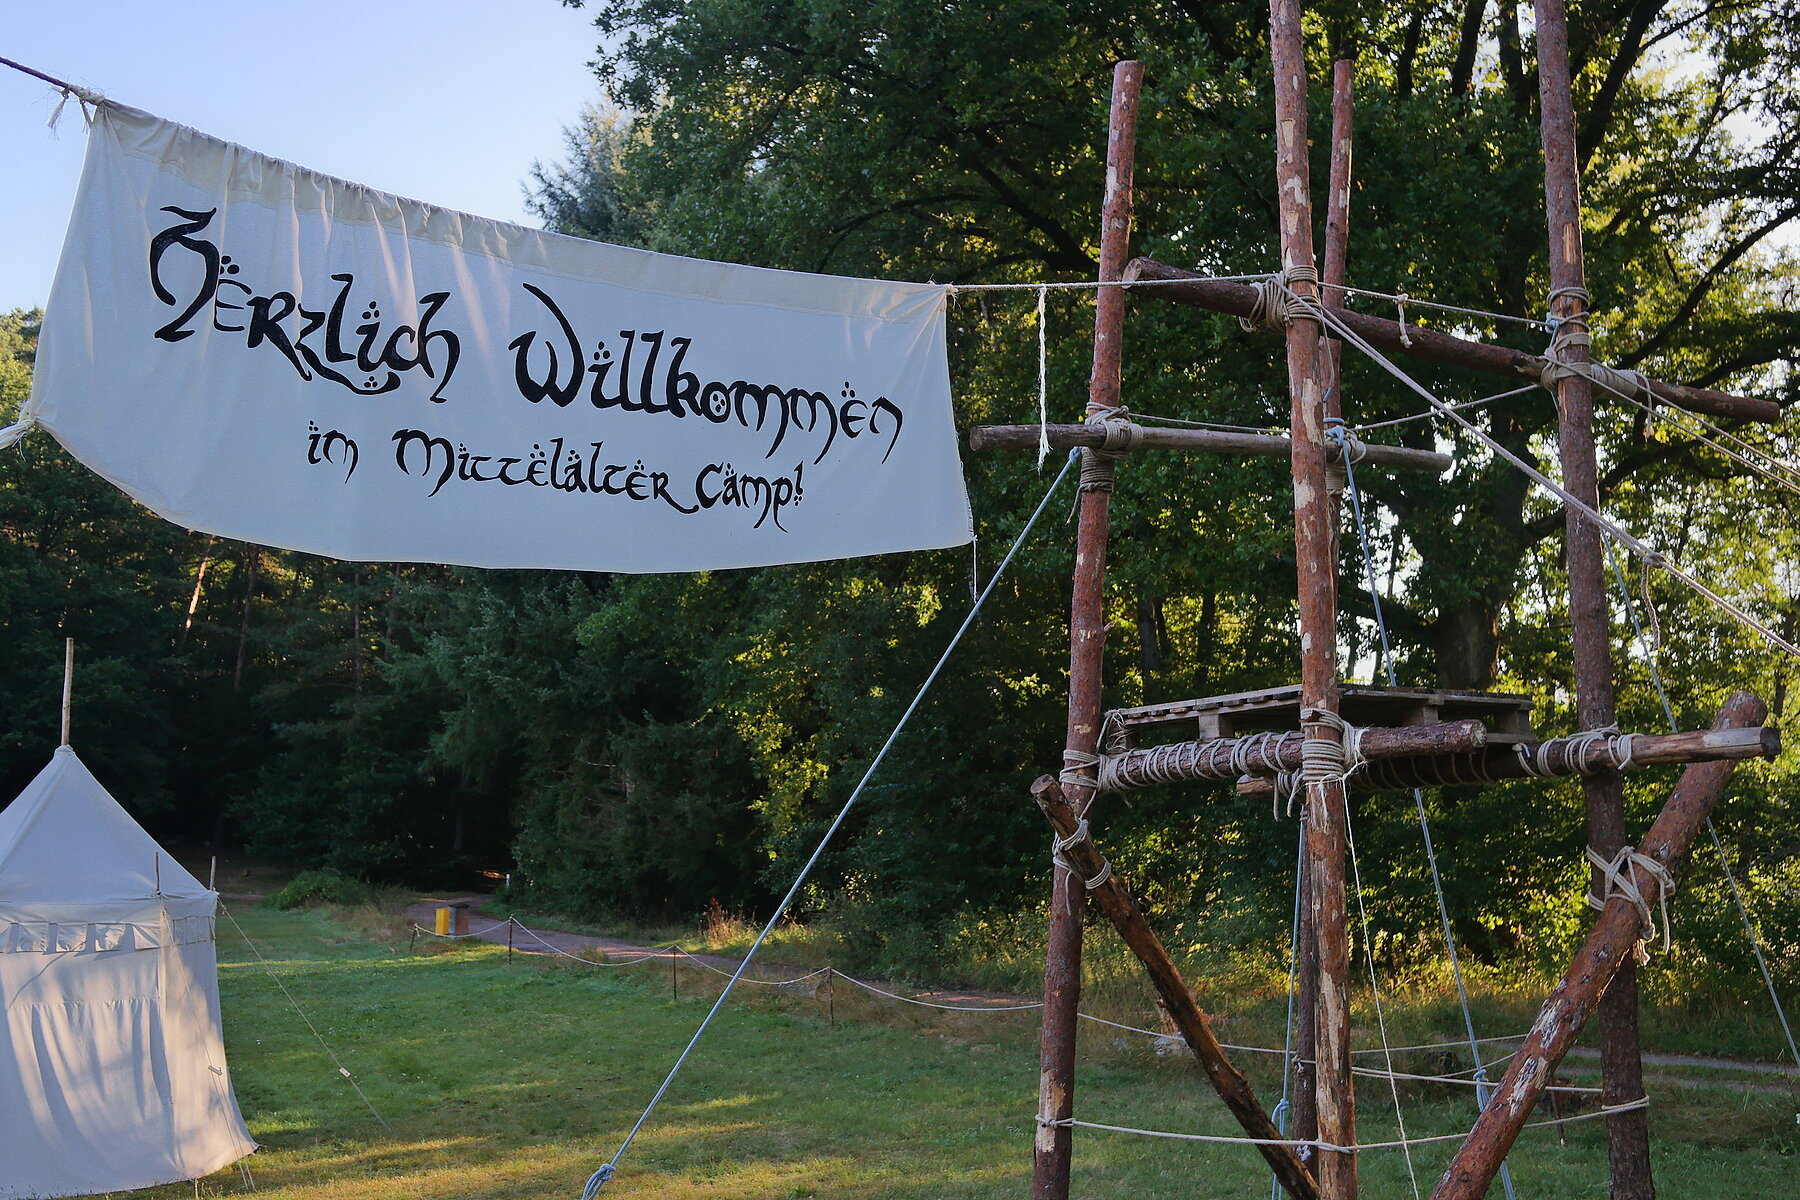 Herzlich Willkommen
im Mittelalter Camp!